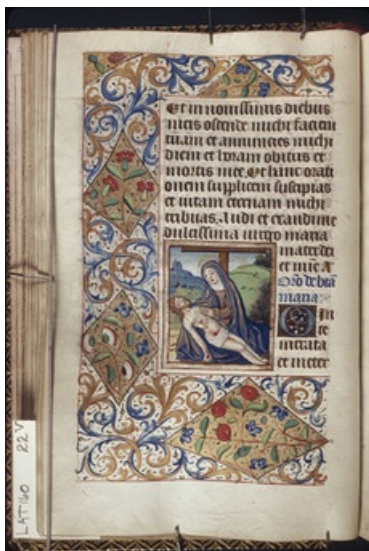 Et in nouissimis diebus
meis ostende michi faciem
tuam et annuncies michi
diem et horam obitus et
mortis mee. Et hanc orati
onem supplicem suscipias
et uitam eternam michi
tribuas. Audi et exaudi me
dulcissima uirgo maria
mater dei
et mīe A
Orō de beā
maria
O In
te
merata
et in eter
LAT 160 22V